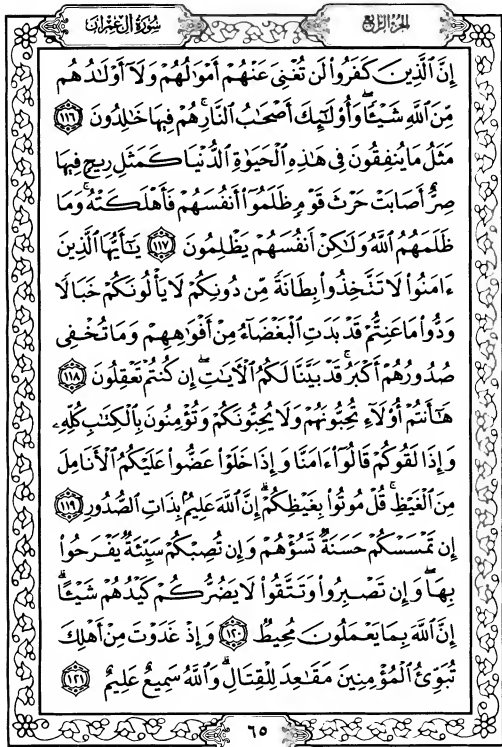 الجزء الرابع
سورة آل عمران
إِنَّ ٱلَّذِينَ كَفَرُواْ لَن تُغْنِىَ عَنْهُمْ أَمْوَٰلُهُمْ وَلَآ أَوْلَـٰدُهُم
مِّنَ ٱللَّهِ شَيْـًٔا ۖ وَأُوْلَـٰٓئِكَ أَصْحَـٰبُ ٱلنَّارِ ۚ هُمْ فِيهَا خَـٰلِدُونَ ١١٦
مَثَلُ مَا يُنفِقُونَ فِى هَـٰذِهِ ٱلْحَيَوٰةِ ٱلدُّنْيَا كَمَثَلِ رِيحٍ فِيهَا
صِرٌّ أَصَابَتْ حَرْثَ قَوْمٍ ظَلَمُوٓاْ أَنفُسَهُمْ فَأَهْلَكَتْهُ ۚ وَمَا
ظَلَمَهُمُ ٱللَّهُ وَلَـٰكِنْ أَنفُسَهُمْ يَظْلِمُونَ ١١٧ يَـٰٓأَيُّهَا ٱلَّذِينَ
ءَامَنُواْ لَا تَتَّخِذُواْ بِطَانَةً مِّن دُونِكُمْ لَا يَأْلُونَكُمْ خَبَالًا
وَدُّواْ مَا عَنِتُّمْ قَدْ بَدَتِ ٱلْبَغْضَآءُ مِنْ أَفْوَٰهِهِمْ وَمَا تُخْفِى
صُدُورُهُمْ أَكْبَرُ ۚ قَدْ بَيَّنَّا لَكُمُ ٱلْـَٔايَـٰتِ ۖ إِن كُنتُمْ تَعْقِلُونَ ١١٨
هَـٰٓأَنتُمْ أُوْلَآءِ تُحِبُّونَهُمْ وَلَا يُحِبُّونَكُمْ وَتُؤْمِنُونَ بِٱلْكِتَـٰبِ كُلِّهِۦ
وَإِذَا لَقُوكُمْ قَالُوٓاْ ءَامَنَّا وَإِذَا خَلَوْاْ عَضُّواْ عَلَيْكُمُ ٱلْأَنَامِلَ
مِنَ ٱلْغَيْظِ ۚ قُلْ مُوتُواْ بِغَيْظِكُمْ ۗ إِنَّ ٱللَّهَ عَلِيمٌۢ بِذَاتِ ٱلصُّدُورِ ١١٩
إِن تَمْسَسْكُمْ حَسَنَةٌ تَسُؤْهُمْ وَإِن تُصِبْكُمْ سَيِّئَةٌ يَفْرَحُواْ
بِهَا ۖ وَإِن تَصْبِرُواْ وَتَتَّقُواْ لَا يَضُرُّكُمْ كَيْدُهُمْ شَيْـًٔا ۗ
إِنَّ ٱللَّهَ بِمَا يَعْمَلُونَ مُحِيطٌ ١٢٠ وَإِذْ غَدَوْتَ مِنْ أَهْلِكَ
تُبَوِّئُ ٱلْمُؤْمِنِينَ مَقَـٰعِدَ لِلْقِتَالِ ۗ وَٱللَّهُ سَمِيعٌ عَلِيمٌ ١٢١
٦٥